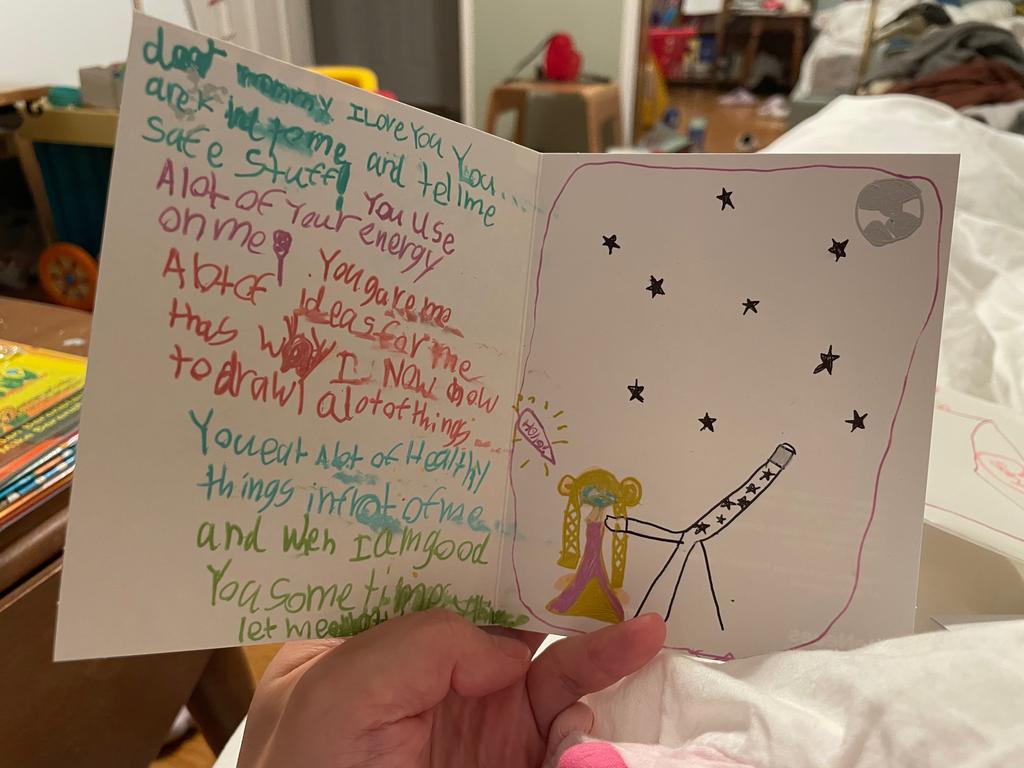 dear mommy I Love You You...
are int for me and tell me
safe stuff! You Use
A lot of Your energy
on me! You gave me
A lot of ideas for me
thas Way I Now how
to draw! a lot of things...
You eat A lot of Healthy
things infrot of me
and Wen I am good
You some times
let me